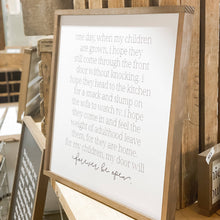 one day, when my children
are grown, i hope they
still come through the front
door without knocking. i
hope they head to the kitchen
for a snack and slump on
the sofa to watch tv. i hope
they come in and feel the
weight of adulthood leave
them, for they are home.
for my children, my door will
forever be open